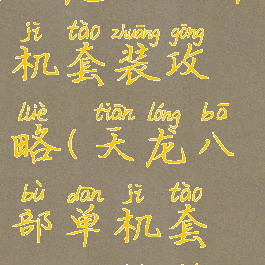 jī tào zhuāng gōng
机套装攻
lüè tiān lóng bā
略(天龙八
bù dān jī tào
部单机套